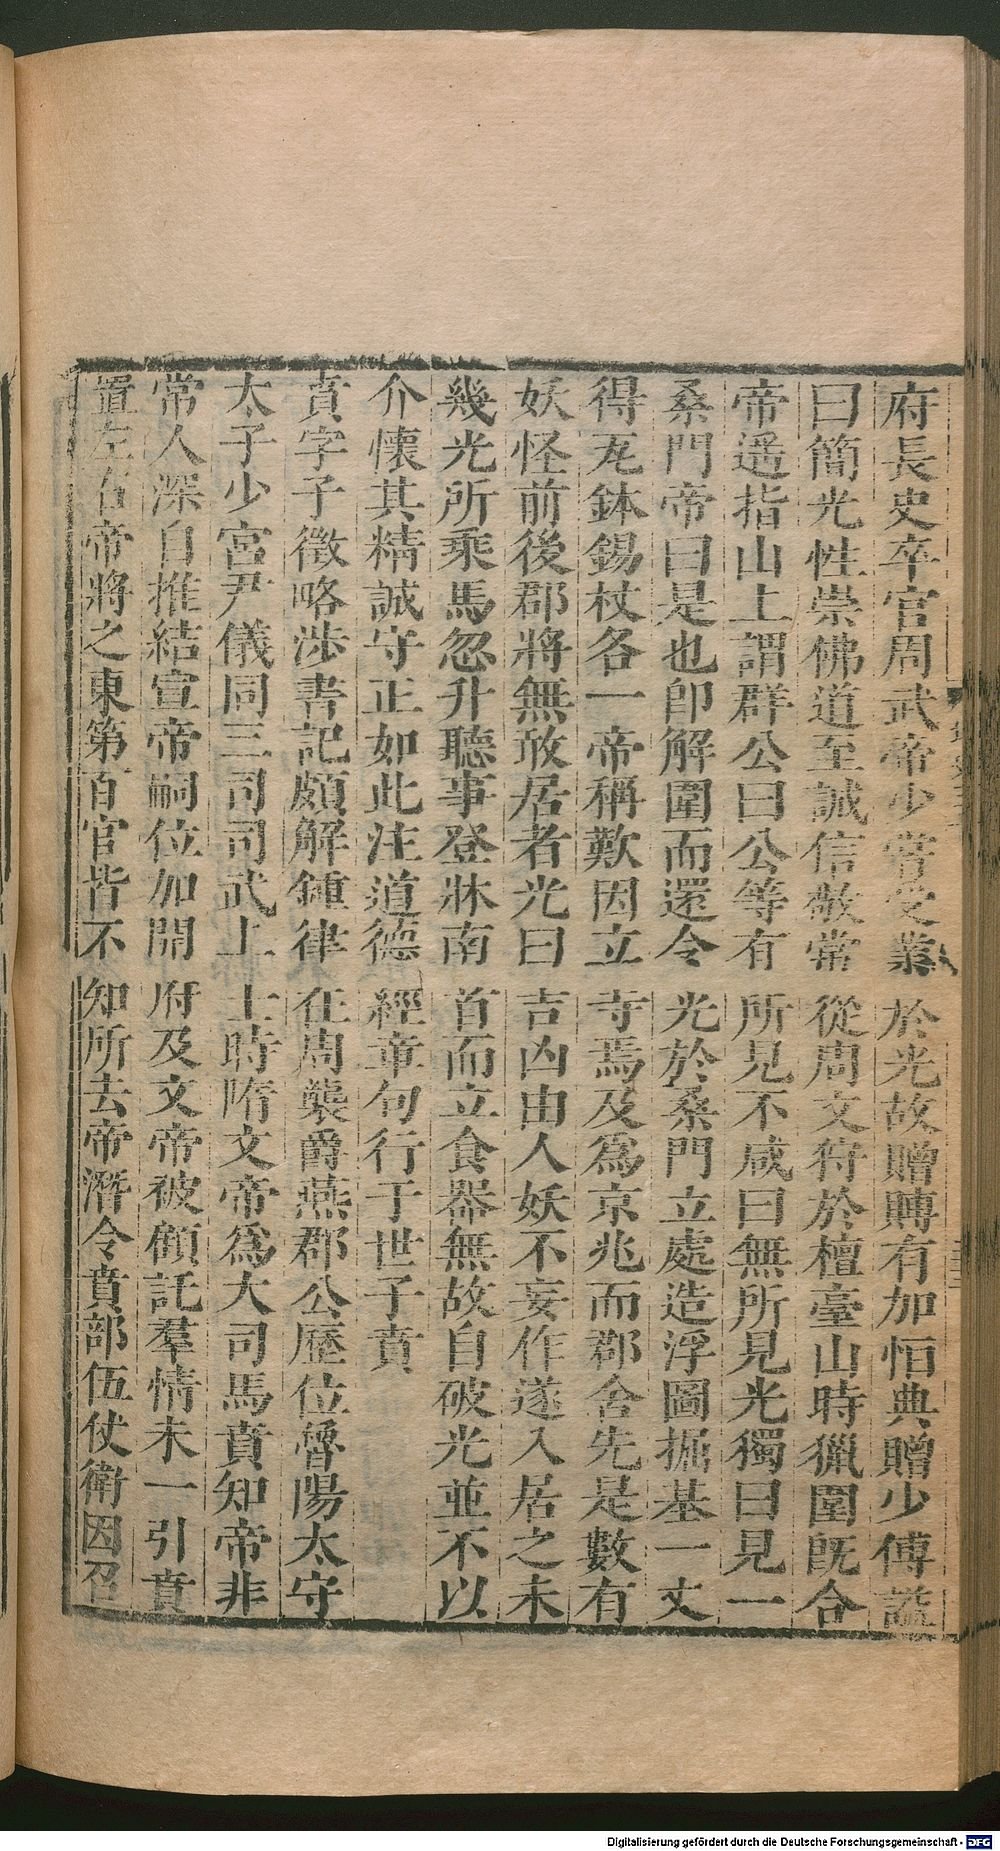 府長史卒官周武帝少嘗受業於光故贈賻有加恒典贈少傅謚
曰簡光性崇佛道至誠信敬常從周文狩於檀臺山時獵圍既合
帝遥指山上謂群公曰公等有所見不咸曰無所見光獨曰見一
桑門帝曰是也卽解圍而還令光於桑門立處造浮圖掘基一丈
得瓦鉢錫杖各一帝稱歎因立寺焉及爲京兆而郡舍先是數有
妖怪前後郡將無敢居者光曰吉凶由人妖不妄作遂入居之未
幾光所乘馬忽升聽事登牀南首而立食器無故自破光並不以
介懷其精誠守正如此注道德經章句行于世子賁
賁字子徵略涉書記頗解鍾律在周襲爵燕郡公歷位魯陽太守
太子少宮尹儀同三司司武上士時隋文帝爲大司馬賁知帝非
常人深自推結宣帝嗣位加開府及文帝被顧託羣情未一引賁
置左右帝將之東第百官皆不知所去帝潛令賁部伍仗衛因召
Digitalisierung gefördert durch die Deutsche Forschungsgemeinschaft - DFG